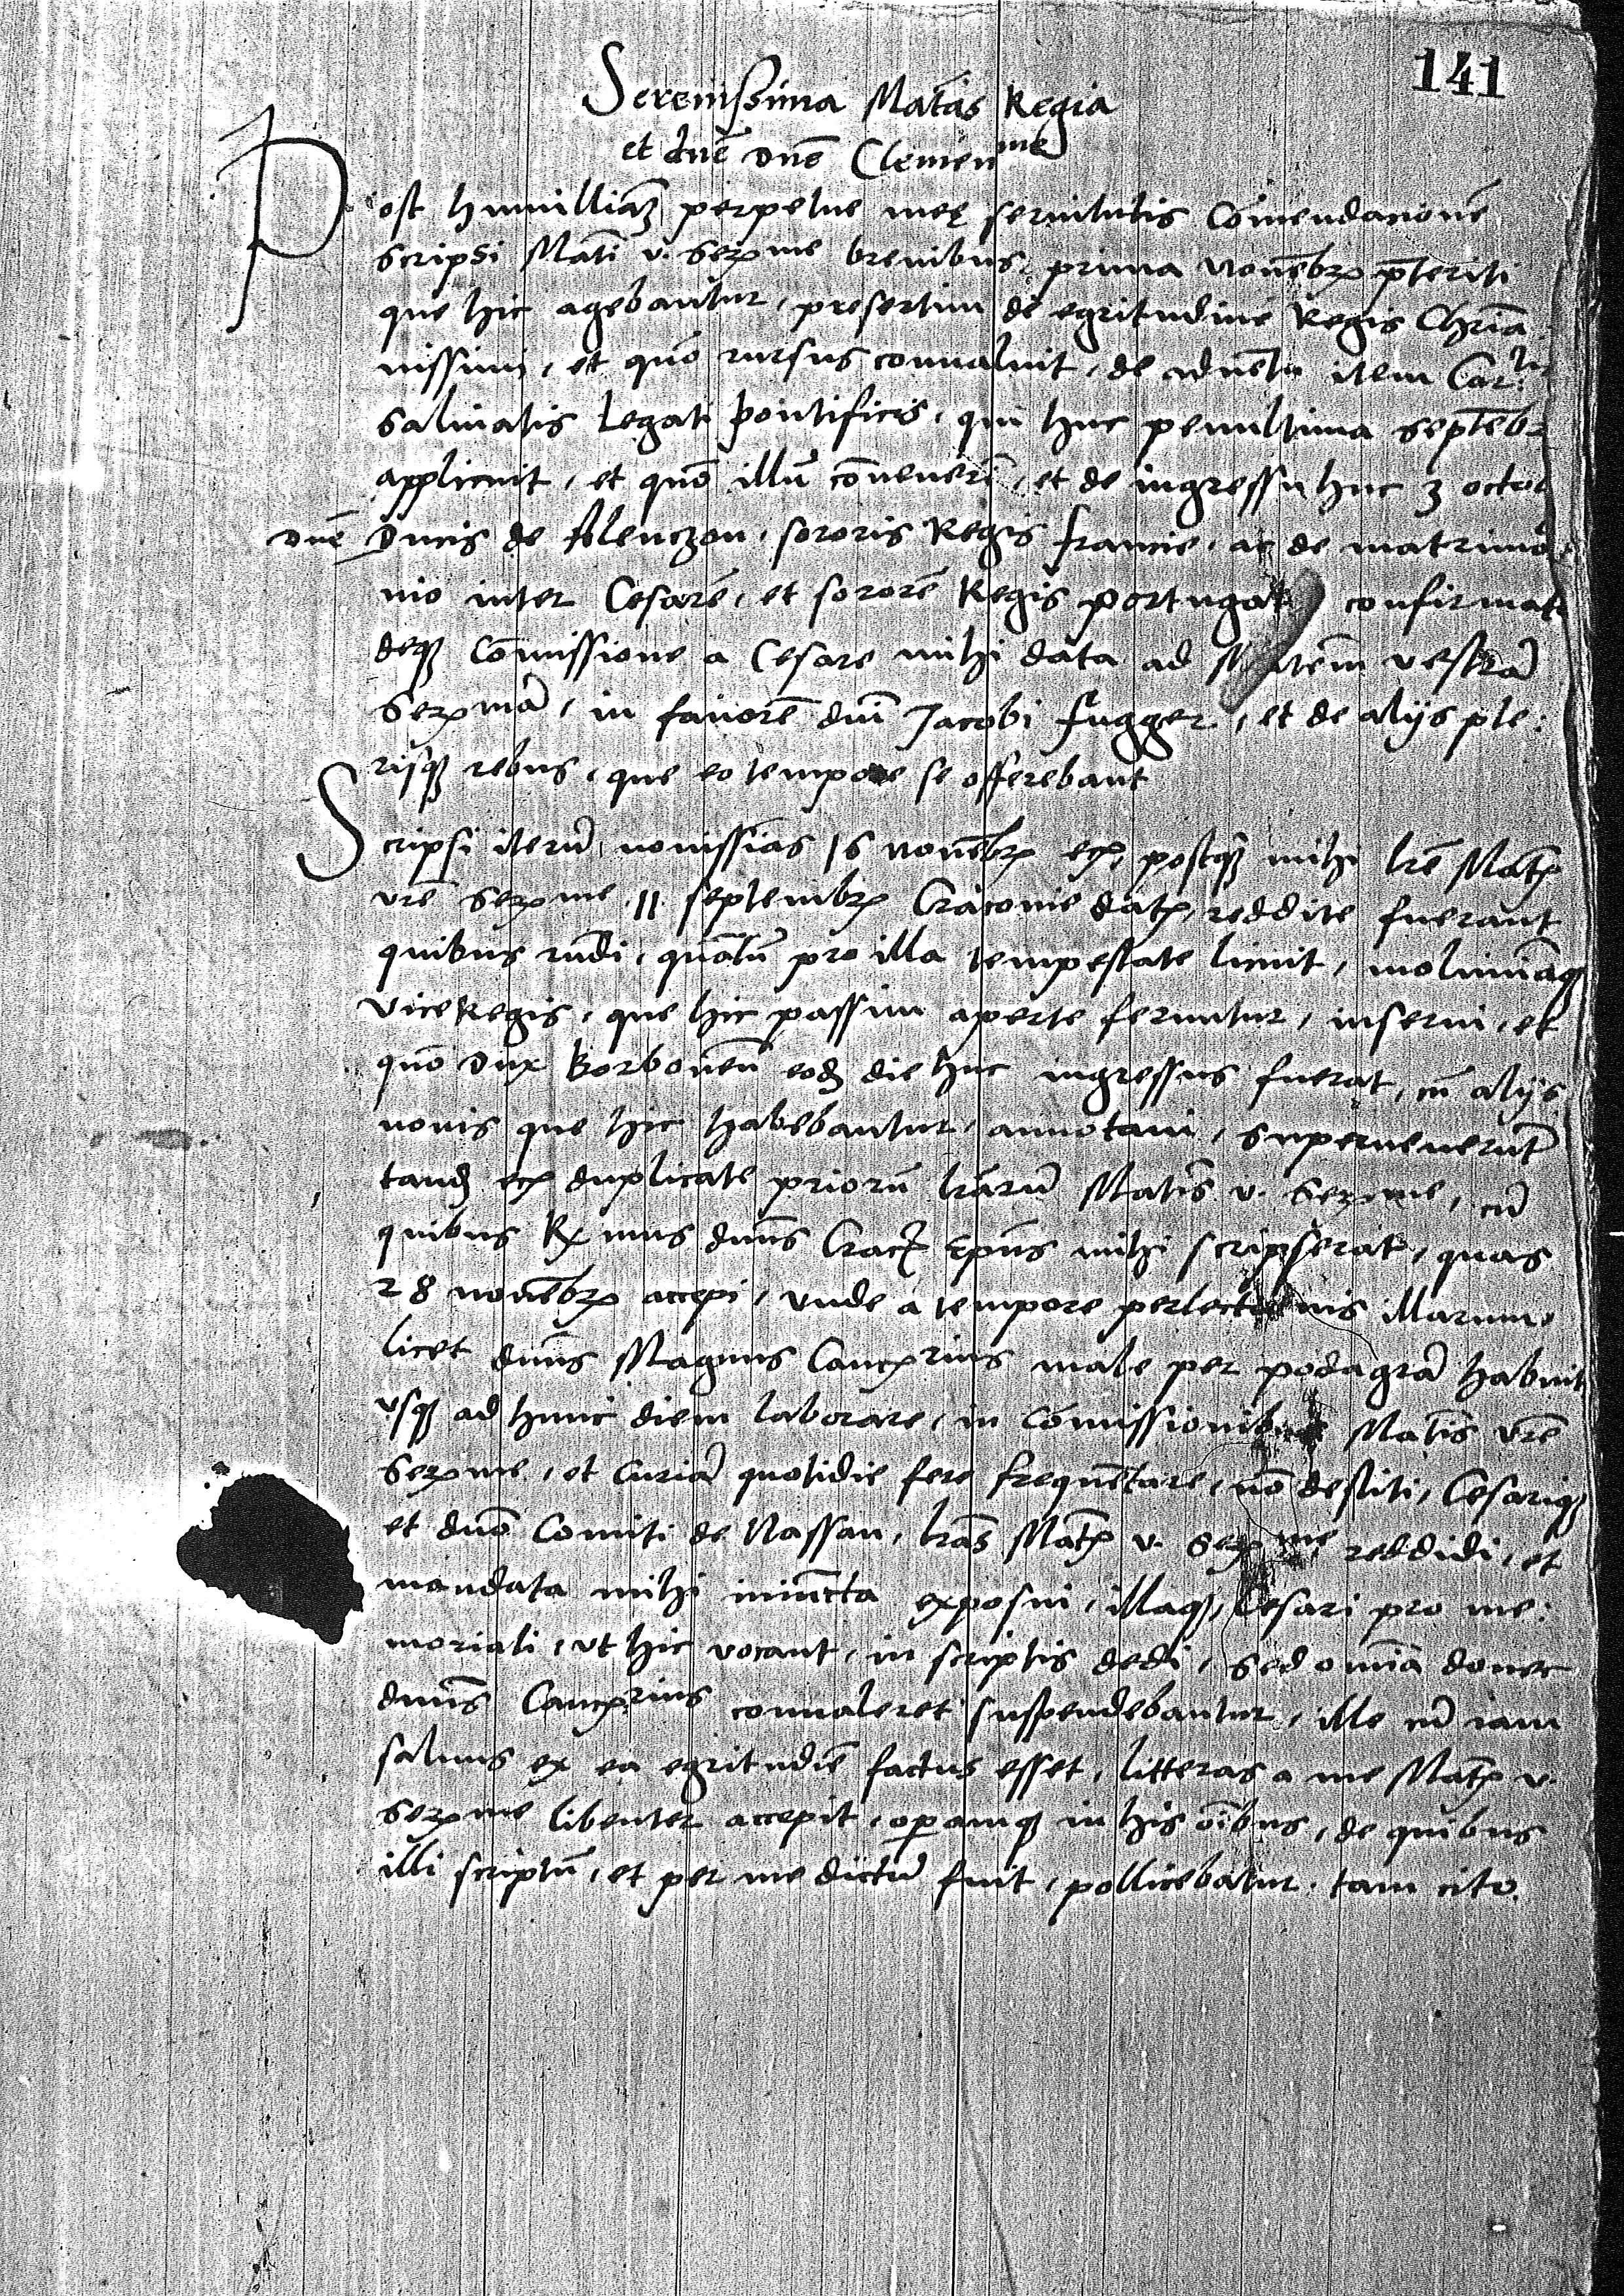 141
Serenissima Mat̄as Regia
et dn̄e dn̄e Clemen^me
Post humilliāȝ perpetue meę servitutis Comendacionē
scripsi Mat̄i v. Serꝫme brevibus, prima novēbrꝫ p̄teriti
que hic agebantur, presertim de egritudine Regis Chria
nissimi, et quō rursus convaluit, de advētu item Car:^lis
Salviatis Legati pontificis, qui huc penultima septēb
applicuit, et quō illū cōvenerī, et de ingressu huc 3 octob
dn̄e Ducis de Alenczon, sororis Regis francie, ac de matrimo
nio inter Cesarē, et sororē Regis portugal confirmat
deqȝ Cōmissione a Cesare mihi data ad Mtem vestrā
Serꝫmā, in favorē dn̄i Jacobi fugger, et de alijs ple:
risqȝ rebus, que eo tempore se offerebant
Scripsi iterū novissīas 16 novēbrꝫ ecꝫ, postqȝ mihi lr̄e Matꝫ
vr̄e Serꝫme 11 septembrꝫ Cracovie datꝫ, reddite fuerant
quibus rn̄di, quātū pro illa tempestate licuit, moliminaqȝ
viceRegis, que hic passim aperte feruntur, inserui, et
quō Dux Borbonen̄ eodȝ die huc ingressus fuerat, cū alijs
novis que hic habebantur, annotavi, supervenerūt
tandȝ ecꝫ duplicate priorū lrārū Mat̄is v. Serꝫme, cū
quibus Rꝫmus dn̄us Cracꝫ Ep̄us mihi scripserat, quas
28 novēbrꝫ accepi, unde a tempore perlectionis illarum,
licet dn̄us Magnus Cancꝫrius male per podagrā habuit
usqȝ ad hunc diem laborare, in Cōmissionibus Mat̄is vr̄e
Serꝫme, et Curiā quotidie fere frequētare, nō destiti, Cesariqȝ
et dn̄o Comiti de Nassau, lrās Matꝫ v. Serꝫme reddidi, et
mandata mihi iniūcta exposui, illaqȝ, Cesari pro me:
moriali, ut hic vocant, in scriptis dedi, sed om̄ia donec
dn̄us Cancꝫrius convaleret suspendebantur, ille cū iam
salvus ex ea egritudīe factus esset, litteras a me Matꝫ v.
Serꝫme libenter accepit, operamqȝ in his oībus, de quibus
illi scriptū, et per me dictū fuit, pollicebatur. tam cito